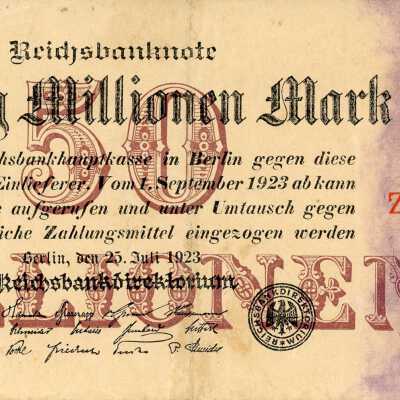 Reichsbanknote
g Millionen Mark
50
chsbankhauptkasse in Berlin gegen diese
Einlieferer. Vom 1. September 1923 ab kann
e aufgerufen und unter Umtausch gegen
liche Zahlungsmittel eingezogen werden
Z
Berlin, den 25. Juli 1923
Reichsbankdirektorium
LLIONEN
REICHSBANKDIREKTORIUM